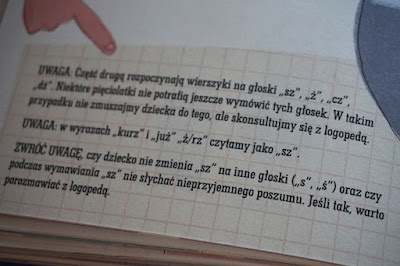 UWAGA: Część drugą rozpoczynają wierszyki na głoski „sz", „ż", „cz",
„dż". Niektóre pięciolatki nie potrafią jeszcze wymówić tych głosek. W takim
przypadku nie zmuszajmy dziecka do tego, ale skonsultujmy się z logopedą.
UWAGA: w wyrazach „kurz" i „już" „ż/rz" czytamy jako „sz".
ZWRÓĆ UWAGĘ, czy dziecko nie zmienia „sz" na inne głoski („s", „ś") oraz czy
podczas wymawiania „sz" nie słychać nieprzyjemnego poszumu. Jeśli tak, warto
porozmawiać z logopedą.